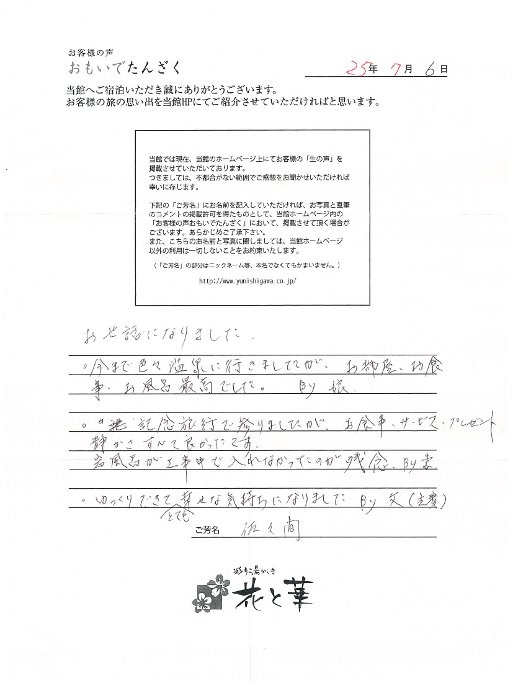 お客様の声
おもいでたんざく
25年 7月 6日
当館へご宿泊いただき誠にありがとうございます。
お客様の旅の思い出を当館HPにてご紹介させていただければと思います。
当館では現在、当館のホームページ上にてお客様の「生の声」を
掲載させていただいております。
つきましては、不都合がない範囲でご感想をお聞かせいただければ
幸いに存じます。
下記の「ご芳名」にお名前を記入していただければ、お写真と直筆
のコメントの掲載許可を得たものとして、当館ホームページ内の
「お客様の声おもいでたんざく」において、掲載させて頂く場合が
ございます。あらかじめご了承下さい。
また、こちらのお名前と写真に関しましては、当館ホームページ
以外の利用は一切しないことをお約束いたします。
(「ご芳名」の部分はニックネーム等、本名でなくてもかまいません。)
http://www.yunishigawa.co.jp/
お世話になりました.
・今まで色々温泉に行きましたが、お部屋、お食
事、お風呂最高でした。 By 娘
・記念旅行で参りましたが、お食事、サービス・プレゼント
静かさすべて良かったです。
岩風呂が工事中で入れなかったのが残念. By 妻
・ゆっくりできてとても幸せな気持ちになりました By 父(主賓)
ご芳名 佐久間
彩り湯かしき
花と華